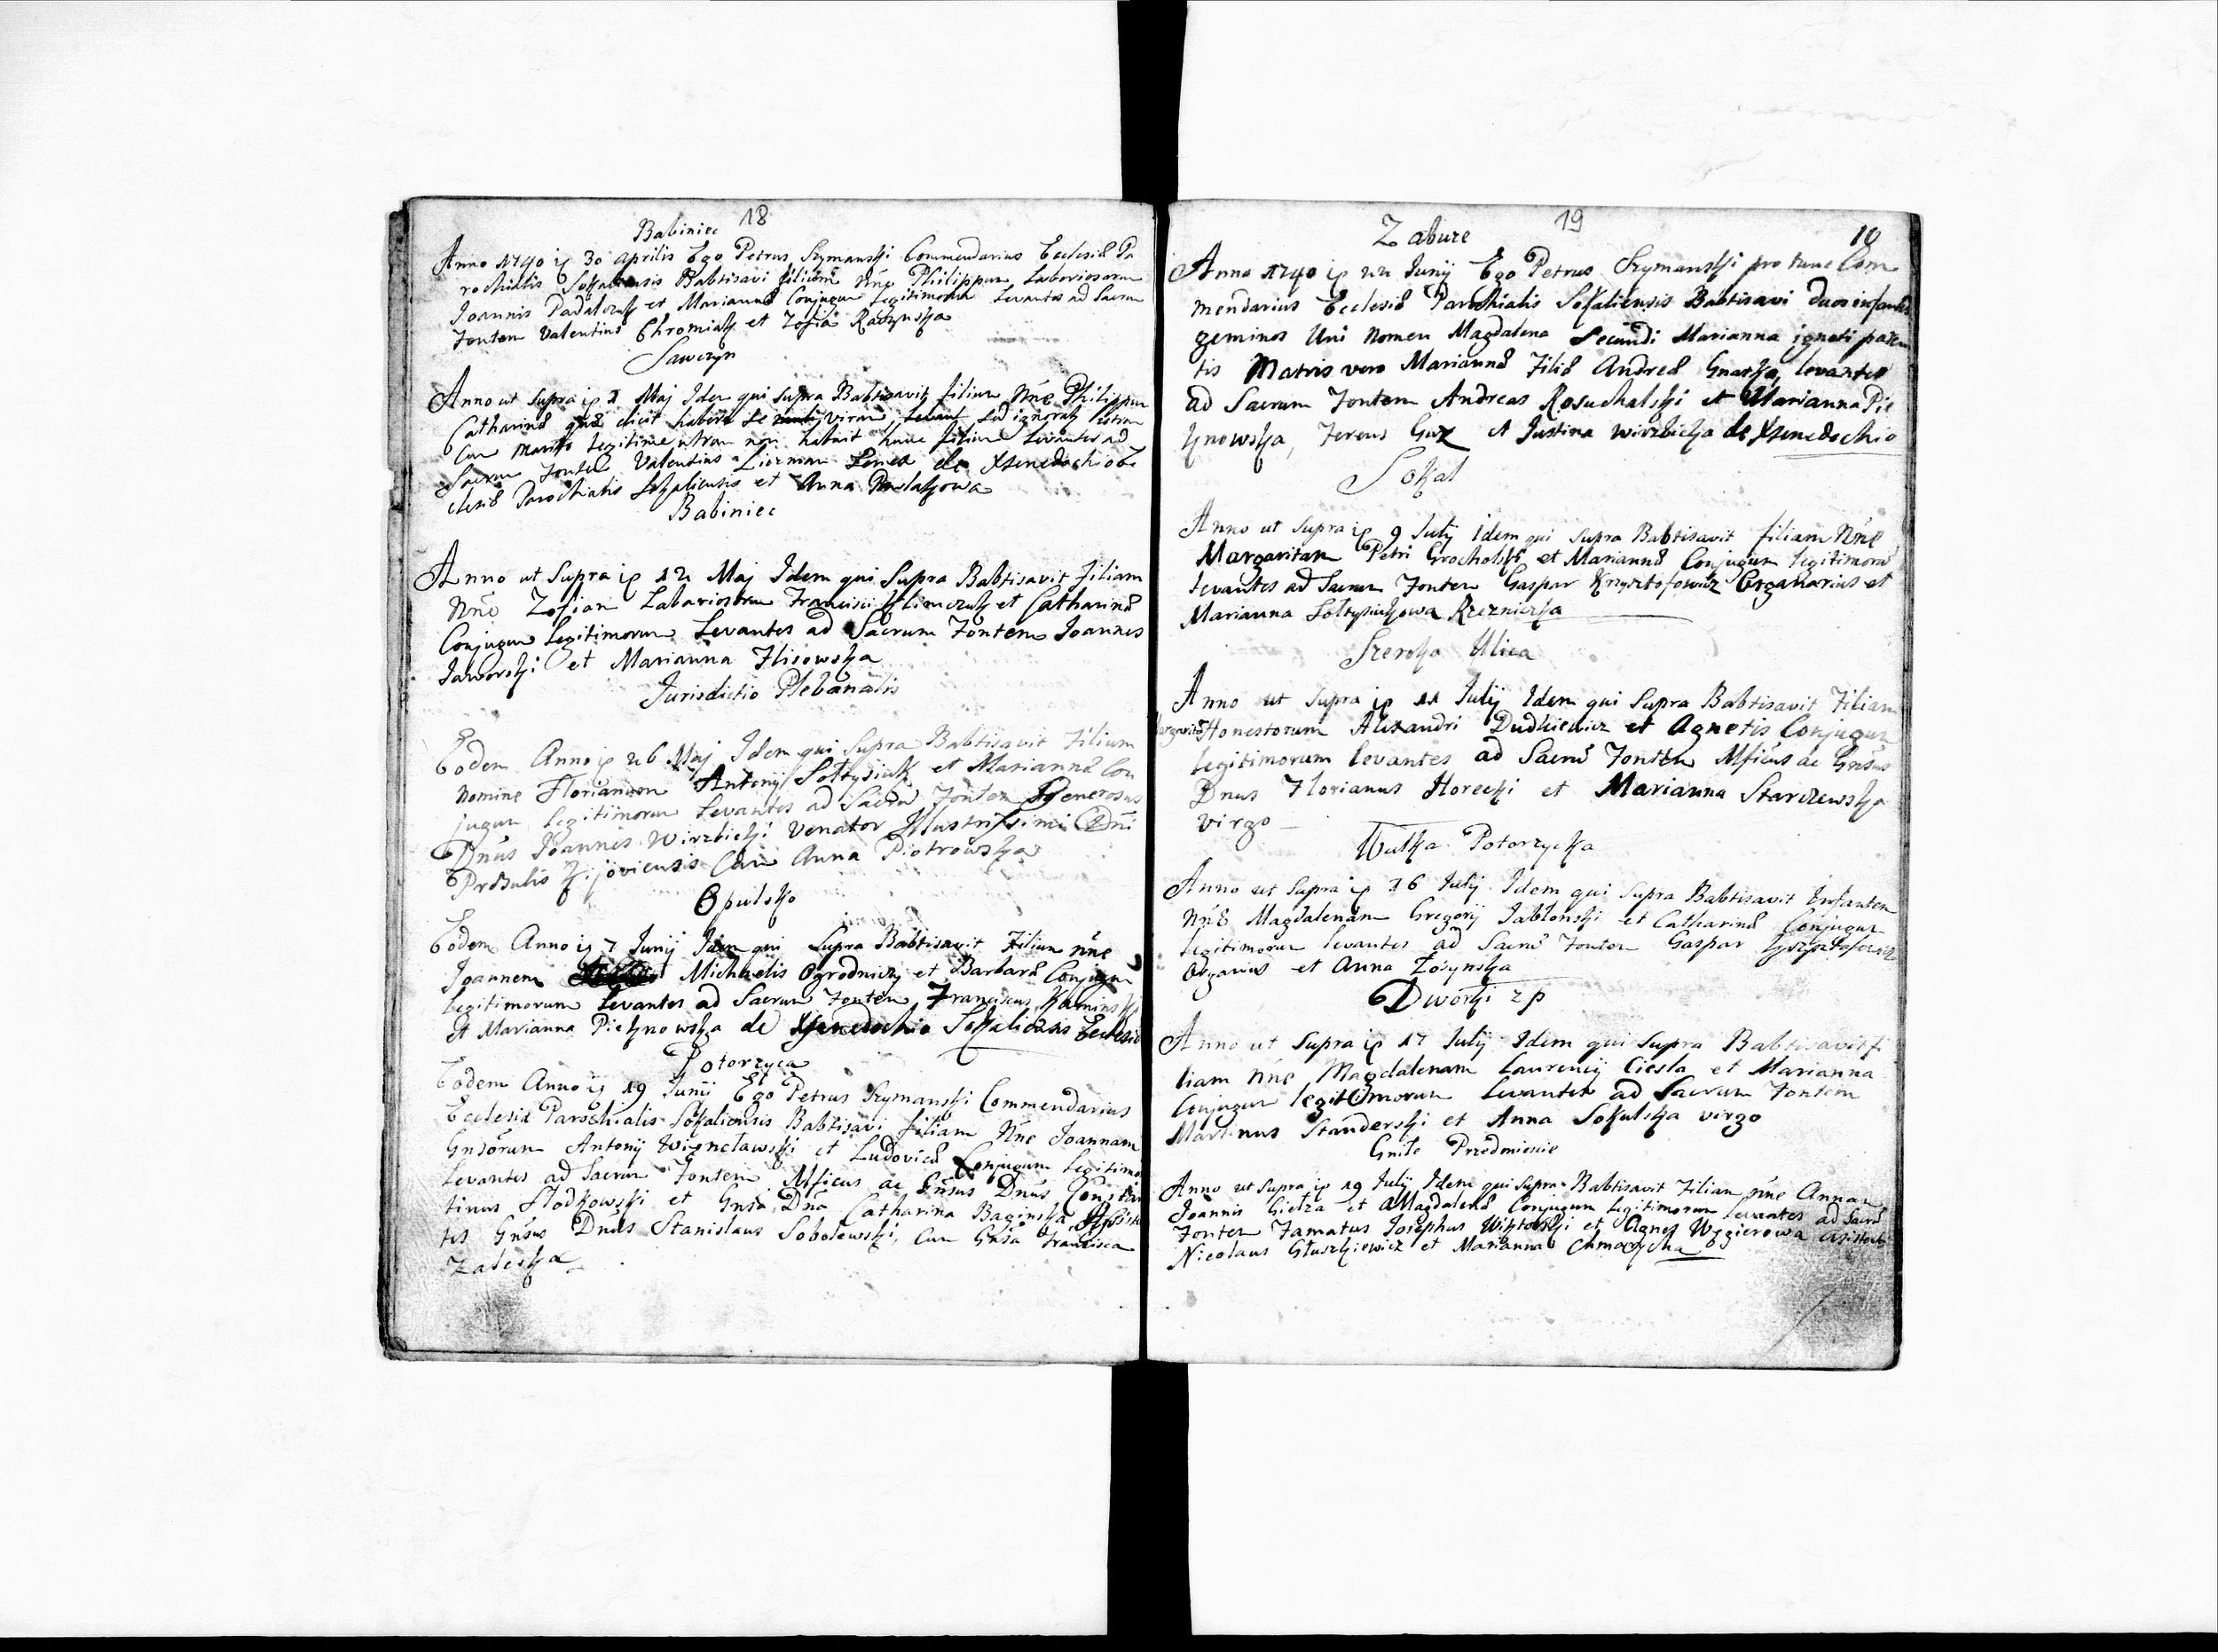 18
Babiniec
Anno 1740 ip 30 Aprilis Ego Petrus Szymanski Commendarius Ecclesiæ Pa
rochialis Sokaliensis Babtisavi filium Nne Philippum Laboriosorum
Joannis Padalczuk et Mariannæ Conjugum Legitimorum Levantes ad Sacrum
Fontem Valentinus Chromiak et Zofia Raczynska
Sawczyn
Anno ut Supra ip 1 Maj Idem qui Supra Babtisavit filium Nne Philippum
Catharinæ quæ dicit habere se virum, sed ignorat utrum
Cum Marito Legitime utrum non habuit hunc filium Levantes ad
Sacrum Fontem Valentinus Lierman Senex de Xsenedochio Ec
clesiæ Parochialis Sokaliensis et Anna
Babiniec
Anno ut Supra ip 12 Maj Idem qui Supra Babtisavit Filiam
Nne Zofiam Labariosorum Francisci Klimczuk et Catharinæ
Conjugum Legitimorum Levantes ad Sacrum Fontem Joannes
Jaworski et Marianna Flisowska
Jurisdictio Plebanalis
Eodem Anno ip 26 Maj Idem qui Supra Babtisavit Filium
Nomine Florianum Antonij Sołtysiak et Mariannæ Con
jugum Legitimorum Levantes ad Sacrum Fontem Generosus
Dnus Joannes Wirzbicki Venator Illustrissimi Dni
Præsulis Kijoviensis Cum Anna Piotrowska
Opulsko
Eodem Anno ip 7 Junij Idem qui Supra Babtisavit Filium Nne
Joannem Michaelis Ogrodniczy et Barbaræ Conjugum
Legitimorum Levantes ad Sacrum Fontem, Franciscus Kaminski
et Marianna Pieknowska de Xsenedochio Sokaliensis Ecclesiæ
Potorzyca
Eodem Anno ip 19 Junij Ego Petrus Szymanski Commendarius
Ecclesiæ Parochialis Sokaliensis Babtisavi filiam Nne Joannam
Gnsorum Antonij et Ludovicæ Conjugum Legitimo
Levantes ad Sacrum Fontem Mficus ac Gnsus Dnus Constan
tinus Słodkowski et Gnsa Dna Catharina Baginska, Assisten
tes Gnsus Dnus Stanislaus Sobolewski, Cum Gnsa Francisca
Zaleska
19
10
Zabuze
Anno 1740 ip 22 Junij Ego Petrus Szymanski pro tunc Com
mendarius Ecclesiæ Parochialis Sokaliensis Babtisavi duos infantes
geminos Uni Nomen Magdalena Secundi Marianna ignoti paren
tis Matris vero Mariannæ Filiæ Andreæ Gnatka, levantes
ad Sacrum Fontem Andreas Rosuchalski et Marianna Pie
knowska, Ferens Guz et Justina Wirzbicka de Xsenedochio
Sokal
Anno ut Supra ip 9 July Idem qui Supra Babtisavit filiam Nne
Margaritam Petri Grocholski et Mariannæ Conjugum legitimorum
levantes ad Sacrum Fontem Gaspar Krzysztofowicz Organarius et
Marianna Sołtysiukowa Rzeznicka
Szeroka Ulica
Anno ut Supra ip 11 Julij Idem qui Supra Babtisavit Filiam
Margaritam Honestorum Alexandri Dudkiewicz et Agnetis Conjugum
legitimorum levantes ad Sacrum Fontem Mficus ac Gnsus
Dnus Florianus Horecki et Marianna Starczewska
virgo
Wulka Potorzycka
Anno ut Supra ip 16 Julij Idem qui Supra Babtisavit Infantem
Nne Magdalenam Gregorij Jabłonski et Catharinæ Conjugum
Legitimorum levantes ad Sacrum Fontem Gaspar Krzysztofowicz
Organius et Anna Łosynska
Dworki z p
Anno ut Supra ip 17 July Idem qui Supra Babtisavit fi
liam Nne Magdalenam Laurentij Ciesla et Marianna
Conjugum legitimorum Levantes ad Sacrum Fontem
Martinus Standerski et Anna Sokulska virgo
Gniłe Przedmiescie
Anno ut Supra ip 19 July Idem qui Supra Babtisavit Filiam Nne Annam
Joannis Gielza et Magdalenæ Conjugum Legitimorum levantes ad Sacrum
Fontem Famatus Josephus Wiktorski et Agnes Węgierowa asistentes
Nicolaus Głuszkiewicz et Marianna Chmarycka